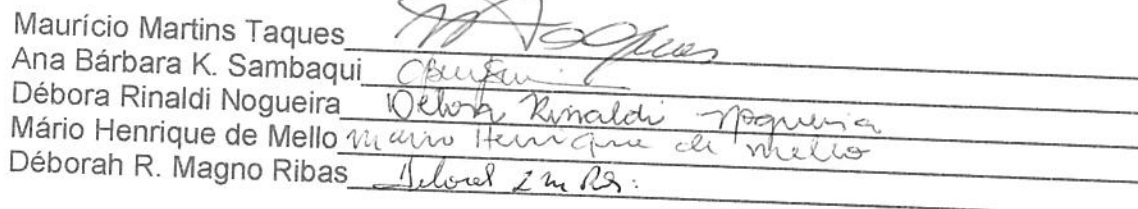 Maurício Martins Taques M Taques
Ana Bárbara K. Sambaqui
Débora Rinaldi Nogueira Débora Rinaldi Nogueira
Mário Henrique de Mello Mario Henrique de Mello
Déborah R. Magno Ribas